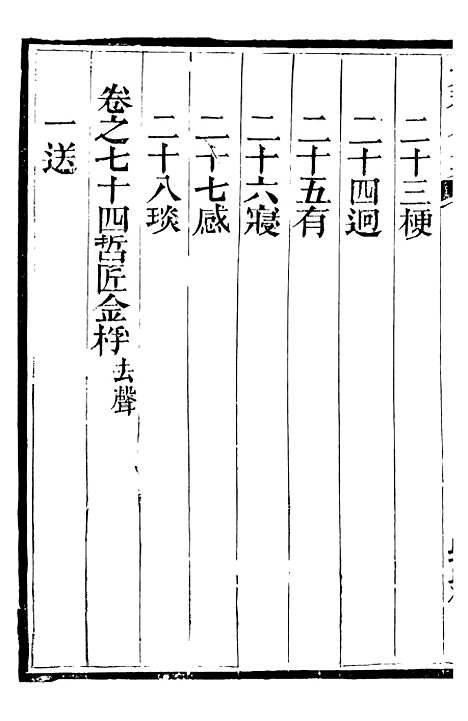 二十三梗
二十四迥
二十五有
二十六寢
二十七感
二十八琰
卷之七十四哲匠金桴去聲
一送